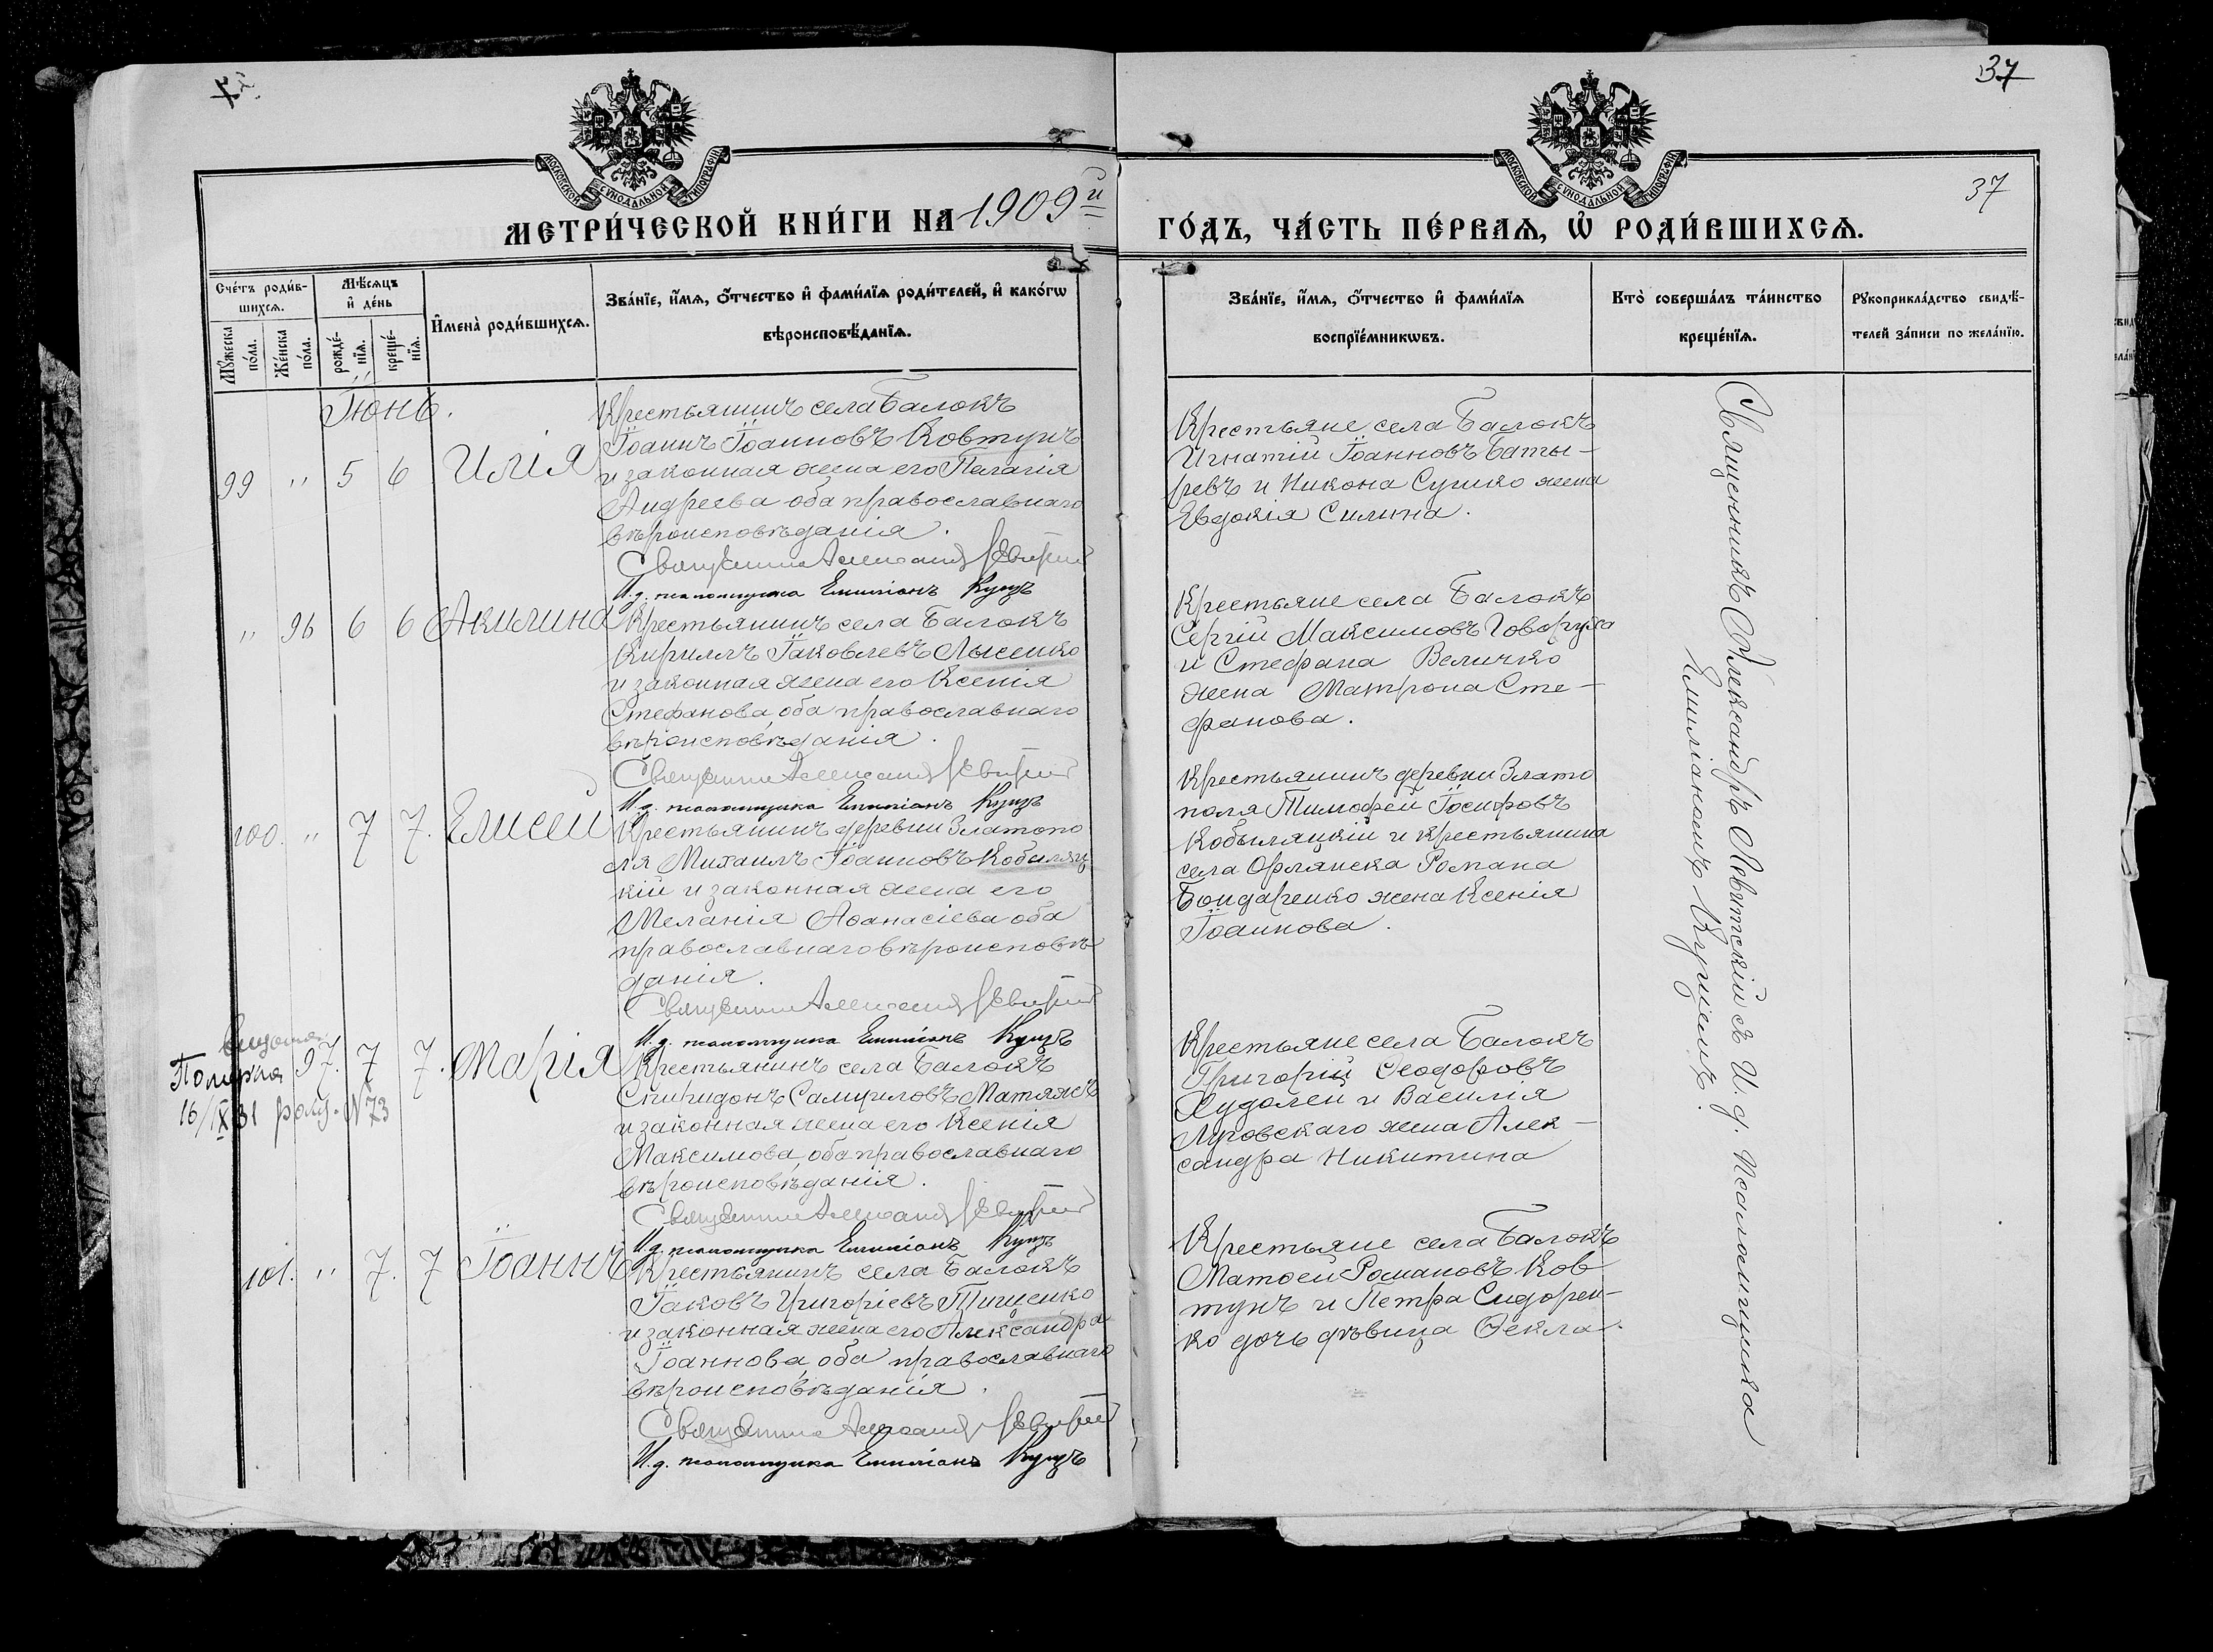 37
МОСКОВСКОЙ СѴНОДАЛЬНОЙ ТИПОГРАФІИ
МОСКОВСКОЙ СѴНОДАЛЬНОЙ ТИПОГРАФІИ
37
МЕТРИ́ЧЕСКОЙ КНИ́ГИ НА 1909й
ГО́ДЪ, ЧА́СТЬ ПЕ́РВАѦ, Ѡ҆ РОДИ́ВШИХСѦ.
Сче́тъ роди́в-
шихсѧ.
Мꙋ́жеска
по́ла.
Же́нска
по́ла.
Мѣ́сѧцъ
и҆ де́нь
рожде́-
нїѧ.
креще́-
нїѧ.
И҆мена̀ роди́вшихсѧ.
Зва́нїе, и҆́мѧ, ѻ҆́тчество и҆ фами́лїѧ роди́телей, и҆ како́гѡ
вѣроисповѣ́данїѧ.
Зва́нїе, и҆́мѧ, ѻ҆́тчество и҆ фами́лїѧ
воспрїе́мникѡвъ.
Кто̀ соверша́лъ та́инство
креще́нїѧ.
Рꙋкоприкла́дство свидѣ́-
телей за́писи по жела́нїю.
Іюнь.
99 " 5 6 Илія
Крестьянинъ села Балокъ
Іоаннъ Іоанновъ Ковтунъ
и законная жена его Пелагія
Андреева оба православнаго
вѣроисповѣданія.
Священникъ Александръ Левитскій
И.д. псаломщика Емиліанъ Кущъ
Крестьяне села Балокъ
Игнатій Іоанновъ Баты-
ревъ и Никона Сушко жена
Евдокія Силина.
" 96 6 6 Акилина
Крестьянинъ села Балокъ
Кириллъ Іаковлевъ Лысенко
и законная жена его Ксенія
Стефанова, оба православнаго
вѣроисповѣданія.
Священникъ Александръ Левитскій
И.д. псаломщика Емиліанъ Кущъ
Крестьяне села Балокъ
Сергій Максимовъ Говоруха
и Стефана Величко
жена Матрона Сте-
фанова.
100. " 7 7. Елисей
Крестьянинъ деревни Златопо
ля Михаилъ Іоанновъ Кобыляц
кій и законная жена его
Меланія Аѳанасіева оба
православнаго вѣроисповѣ
данія.
Священникъ Александръ Левитскій
И.д. псаломщика Емиліанъ Кущъ
Крестьянинъ деревни Злато
поля Тимофей Іосифовъ
Кобыляцкій и крестьянина
села Орлянска Романа
Бондаренко жена Ксенія
Іоаннова.
16/IX 31 року. N 73
97. 7 7. Марія
Крестьянинъ села Балокъ
Спиридонъ Самуиловъ Матлясъ
и законная жена его Ксенія
Максимова, оба православнаго
вѣроисповѣданія.
Священникъ Александръ Левитскій
И.д. псаломщика Емиліанъ Кущъ
Крестьяне села Балокъ
Григорій Ѳеодоровъ
Худолей и Василія
Луговскаго жена Алек-
сандра Никитина
101. " 7. 7 Іоаннъ
Крестьянинъ села Балокъ
Іаковъ Григоріевъ Тищенко
и законная жена его Александра
Іоаннова, оба православнаго
вѣроисповѣданія.
Священникъ Александръ Левитскій
И.д. псаломщика Емиліанъ Кущъ
Крестьяне села Балокъ
Матѳей Романовъ Ков
тунъ и Петра Сидорен-
ко дочь дѣвица Ѳекла.
Священникъ Александръ Левитскій съ И.д. Псаломщика
Емиліаномъ Кущіемъ.